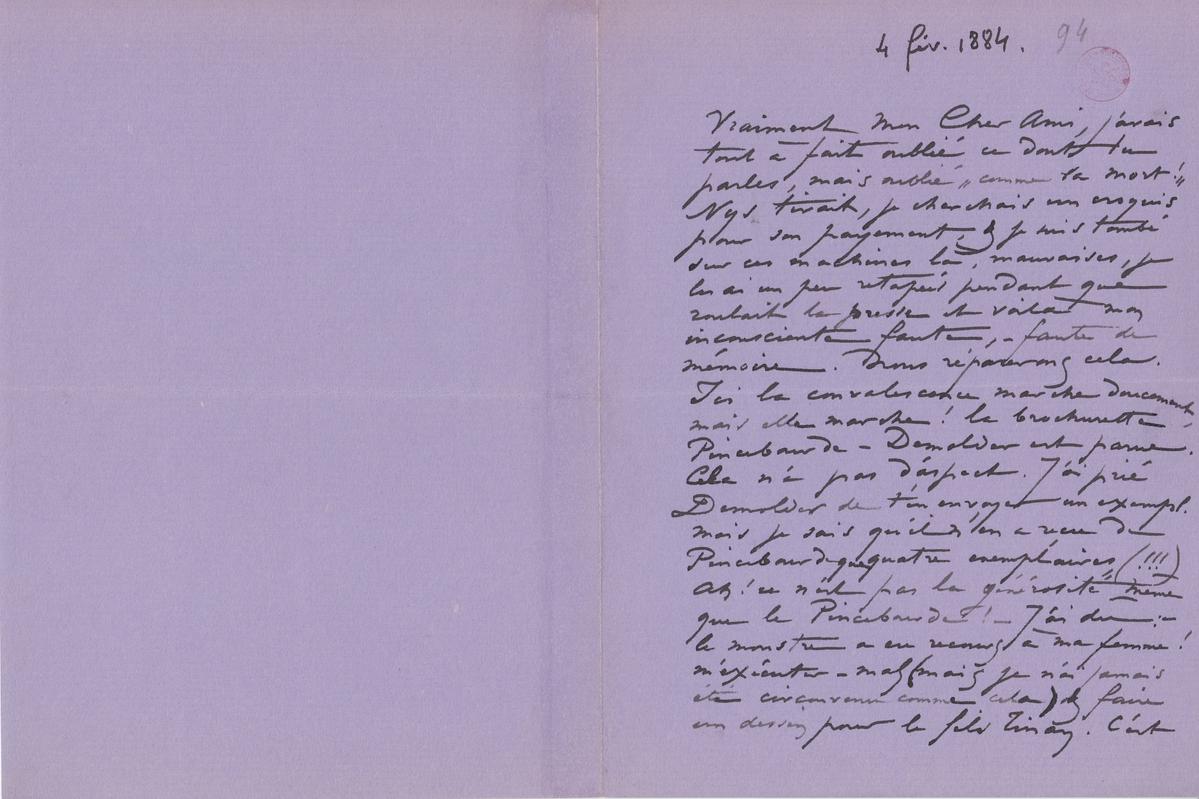 4 fév. 1884.
94
Vraiment mon Cher Ami, j'avais
tout à fait oublié ce dont tu
parles, mais oublié „comme la mort!„
Nys tirait, je cherchais un croquis
pour son payement, & je suis tombé
sur ces machines là, mauvaises, je
les ai un peu retapées pendant que
roulait la presse et voilà mon
inconsciente faute, - faute de
mémoire. Nous réparerons cela.
Ici la convalescence marche doucement,
mais elle marche! la brochurette
Pincebourde - Demolder est parue.
Cela n'a pas d'aspect. J'ai prié
Demolder de t'en envoyer un exempl.
mais je sais qu'il n'en a reçu de
Pincebourde que quatre exemplaires (!!!)
Ah! ce n'est pas la générosité même
que le Pincebourde! - J'ai du :-
le monstre a eu recours à ma femme!
m'exécuter - mal (mais je n'ai jamais
été circonvenu comme cela) & faire
un dessin pour le fils Tinan. C'est